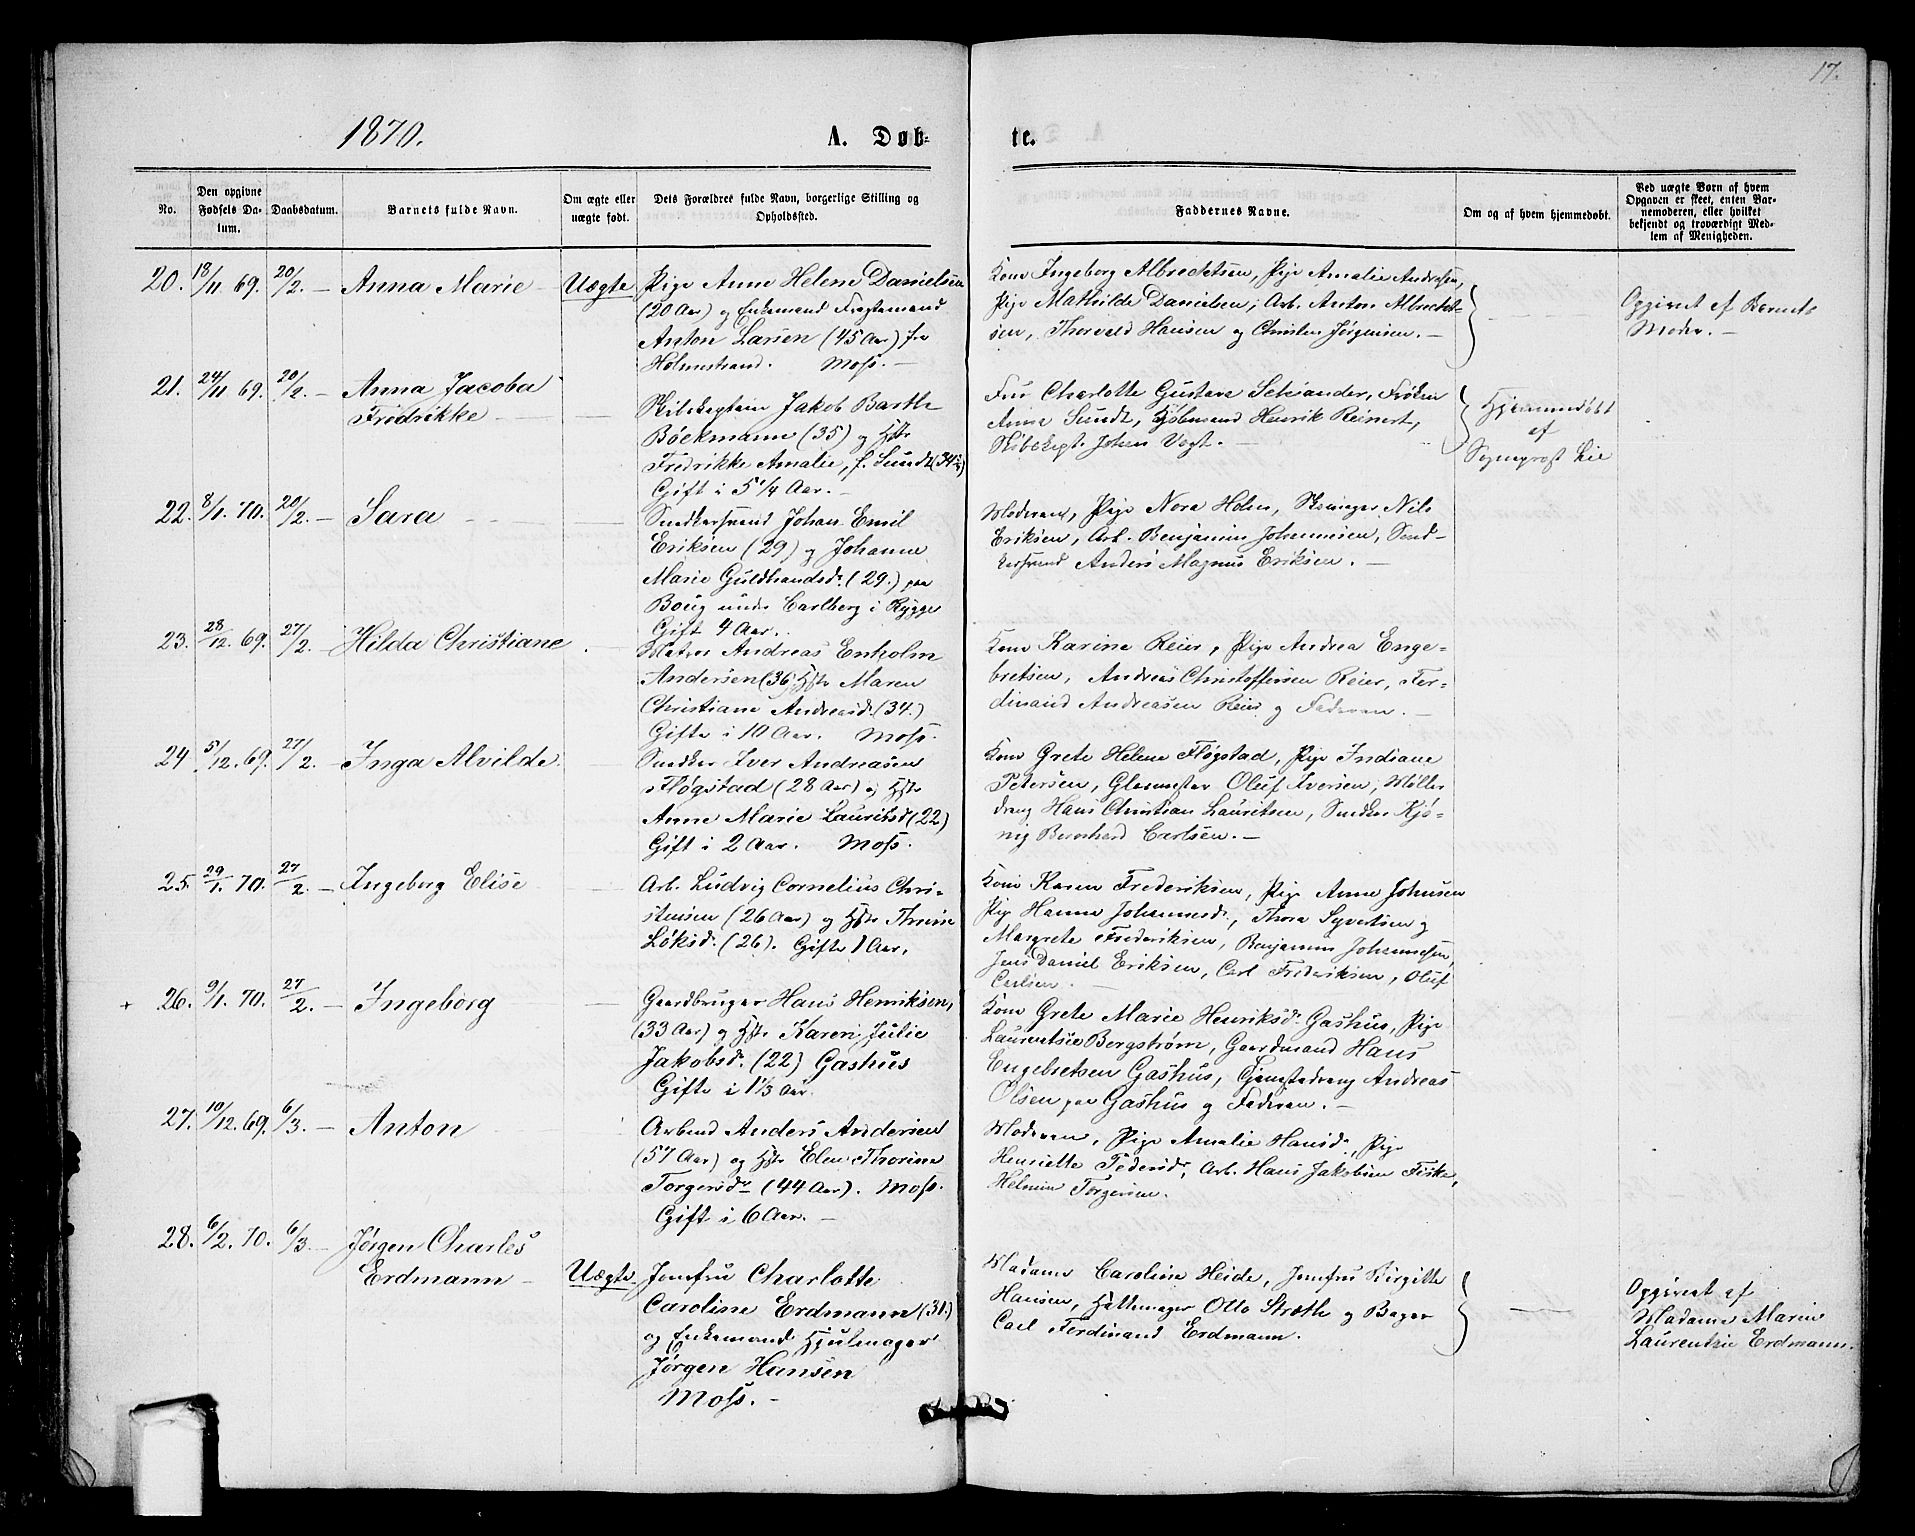 17.
1870.
A. Døb-
te.
No.
Den opgivne
Fødsels Da-
tum.
Daabsdatum.
Barnets fulde Navn.
Om ægte eller
uægte født.
Dets Forældres fulde Navn, borgerlige Stilling og
Opholdssted.
Faddernes Navne.
Om og af hvem hjemmedøbt.
Ved uægte Børn af hvem
Opgaven er skeet, enten Bar-
nemoderen, eller hvilket
bekjendt og troværdigt Med-
lem af Menigheden.
20. 18/11 69. 20/2. — Anna Marie — Uægte
Pige Anne Helene Danielsen
(20 Aar) og Enkemand Fragtemand
Anton Larsen (45 Aar) fra
Holmestrand. Moss. —
Kone Ingeborg Albrechtsen, Pige Amalie Andresen,
Pige Mathilde Danielsen, Arb. Anton Albrecht-
sen, Thorvald Hansen og Christen Jørgensen. —
Opgivet af Barnets
Moder. —
21. 24/11 69. 20/2 — Anna Jacoba
Fredrikke —
Skibskaptein Jakob Barth
Bøckmann (35) og Hstr
Fredrikke Amalie, f. Sundt (34½)
Gift i 5¼ Aar. —
Fru Charlotte Gustava Schiander, Frøken
Anna Sundt, Kjøbmand Henrik Reinert,
Skibskapt. Johan Vogt. —
Hjemmedøbt
af
Sogneprest Lie
22. 8/1. 70. 20/2 — Sara
Snedkersvend Johan Emil
Eriksen (29) og Johanne
Marie Guldbrandsdr (29.) paa
Boug under Carlberg i Rygge
Gift 4 Aar.
Moderen, Pige Nora Holm, Skomager Nils
Eriksen, Arb. Benjamin Johannesen, Sned-
kersvend Anders Magnus Eriksen. —
23. 28/12 69. 27/2 — Hilda Christiane
Matros Andreas Enholm
Andersen (36) Hstr Maren
Christiane Andreasdr (34.)
Gifte i 10 Aar. Moss.
Kone Karine Reier, Pige Andrea Enge-
bretsen, Andreas Christoffersen Reier, Fer-
dinand Andreasen Reier og Faderen. —
24 5/12. 69. 27/2. — Inga Alvilde.
Snedker Iver Andreasen
Fløgstad (28 Aar) og Hstr
Anne Marie Lauritsdr (22)
Gift i 2 Aar. Moss.
Kone Grete Helene Fløgstad, Pige Indiane
Petersen, Glasmester Oluf Iversen, Møller
dreng Hans Christian Lauritsen, Snedker Kjø-
nig Bernhard Carlsen. —
25. 29/1. 70. 27/2. — Ingeborg Elise
Arb. Ludvig Cornelius Chri-
stensen (26 Aar) og Hstr Thrine
Løksdr (26). Gifte 1 Aar.
Kone Karen Frederiksen, Pige Anne Johnsen
Pige Hanna Johannesdr, Thora Syvertsen og
Margrete Frederiksen, Benjamin Johannesen,
Jens Daniel Eriksen, Carl Frederiksen, Oluf
Carlsen. —
+ 26. 9/1. 70. 27/2. — Ingeborg
Gaardbruger Hans Henriksen,
(33 Aar) og Hstr Karen Julie
Jakobsdr (22) Gashus
Gifte i 1⅓ Aar.
Kone Grete Marie Henriksdr Gashus, Pige
Laurentsie Bergstrøm, Gaardmand Hans
Engebretsen Gashus, Tjenestedreng Andreas
Olsen paa Gashus og Faderen. —
27. 10/12. 69. 6/3. — Anton
Arbmd Anders Andersen
(57 Aar) og Hstr Elen Thorine
Torgersdr (44 Aar). Moss.
Gift i 6 Aar. —
Moderen, Pige Amalie Hansdr, Pige
Henriette Pedersdr, Arb. Hans Jakobsen Fiske,
Helmin Torgersen.
28. 6/2. 70. 6/3. — Jørgen Charles
Erdmann — Uægte
Jomfru Charlotte
Caroline Erdmann (31.)
og Enkemand Hjulmager
Jørgen Hansen
Moss. —
Madame Caroline Heide, Jomfru Birgitte
Hansen, Hattemager Otto Stroth og Bager
Carl Ferdinand Erdmann.
Opgivet af
Madame Marie
Laurentzie Erdmann.